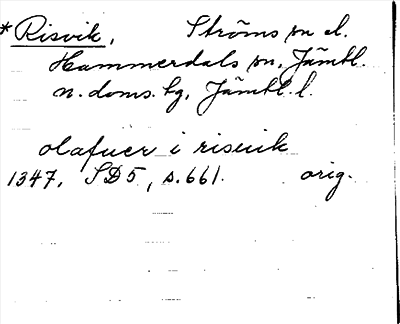 *Risvik, Ströms sn el.
Hammerdals sn, Jämtl.
n. doms. hg, Jämtl. l.
olafuer i risuik
1347. SD 5, s. 661. orig.